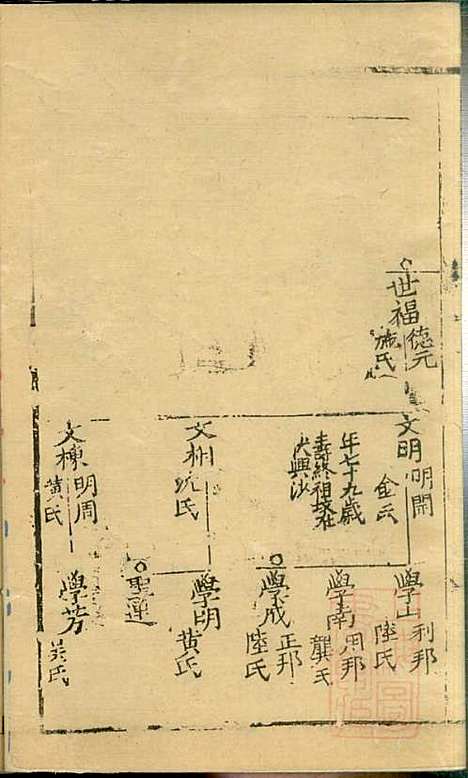 世福 德元
施氏
文明 明開
金氏
年七十九歲
壽終祖墳在
大興沙
文州
沈氏
文樑 明周
黃氏
學山 利邦
陸氏
學南 用邦
龔氏
學成 正邦
陸氏
學明
黃氏
聖運
學芳
吳氏